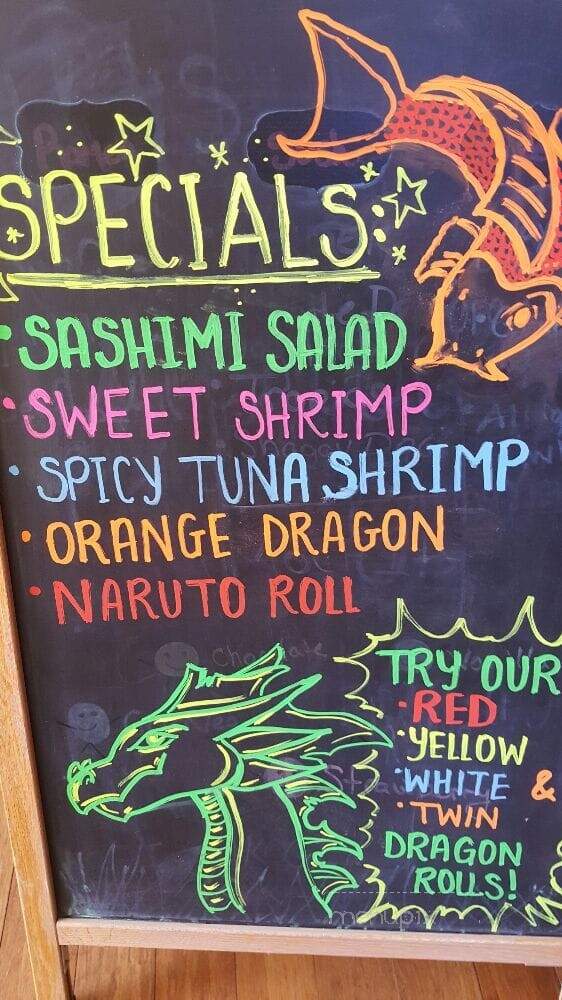 SPECIALS
• SASHIMI SALAD
• SWEET SHRIMP
• SPICY TUNA SHRIMP
• ORANGE DRAGON
• NARUTO ROLL
TRY OUR
• RED
• YELLOW
• WHITE &
• TWIN
DRAGON
ROLLS!
menupix